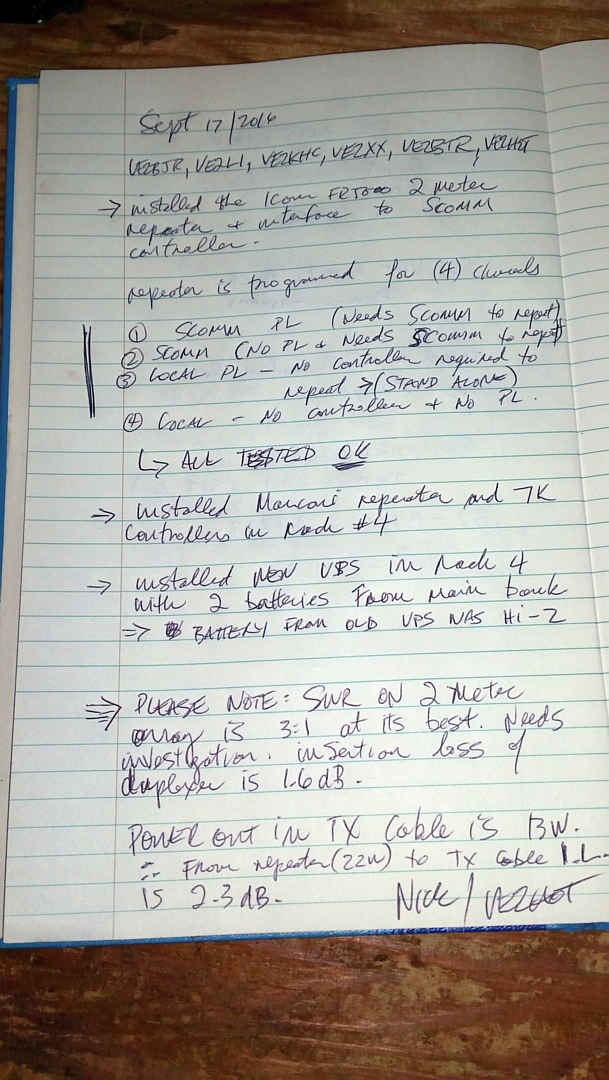 Sept 17/2016
VE2BJR, VE2LI, VE2KHC, VE2XX, VE2BTR, VE2HOT
→ installed the Icom 2 meter
repeater + interface to SCOMM
controller.
repeater is programmed for (4) channels
① SCOMM PL (Needs SCOMM to repeat)
② SCOMM (NO PL + Needs SCOMM to repeat)
③ LOCAL PL - No controller required to
repeat → (STAND ALONE)
④ LOCAL - No controller + No PL.
↳ ALL TESTED OK
→ installed Marconi repeater and 7K
Controllers in Rack #4
→ installed NEW UPS in Rack 4
with 2 batteries From main bank
⇒ BATTERY FROM OLD UPS WAS Hi-Z
⇒ PLEASE NOTE: SWR ON 2 Meter
array is 3:1 at its best. Needs
investigation. insertion loss of
duplexer is 1.6 dB.
POWER OUT IN TX Cable is 13W.
∴ From repeater (22W) to TX cable I.L.
IS 2.3 dB.
Nick / VE2HOT